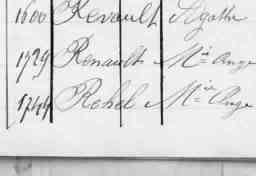 1600 Kevault Agathe
1729 Renault Mie Ange
1744 Rohel Mie Ange